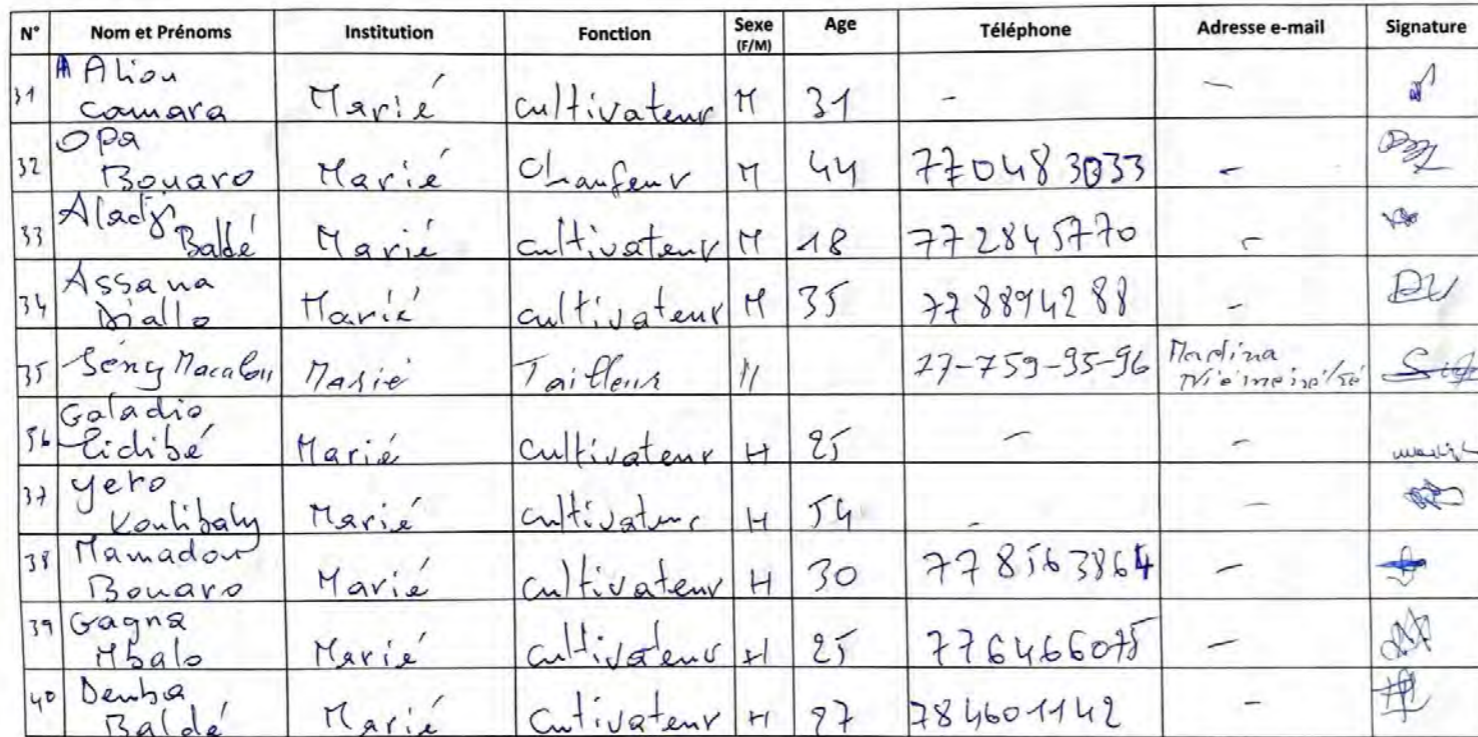 N° Nom et Prénoms Institution Fonction Sexe (F/M) Age Téléphone Adresse e-mail Signature
31 Aliou Camara Marié cultivateur M 31 - -
32 Opa Bouaro Marié Chaufeur M 44 770483033 -
33 Aladji Baldé Marié cultivateur M 18 772845770 -
34 Assana Diallo Marié cultivateur M 35 778894288 -
35 Sény Macalou Marié Tailleur M 77-759-95-96 Madina
36 Galadio Cidibé Marié cultivateur H 25 - -
37 yero Koulibaly Marié cultivateur H 54 - -
38 Mamadou Bouaro Marié cultivateur H 30 778563864 -
39 Gagna Mbalo Marié cultivateur H 25 776466075 -
40 Demba Baldé Marié cutivateur H 27 784601142 -